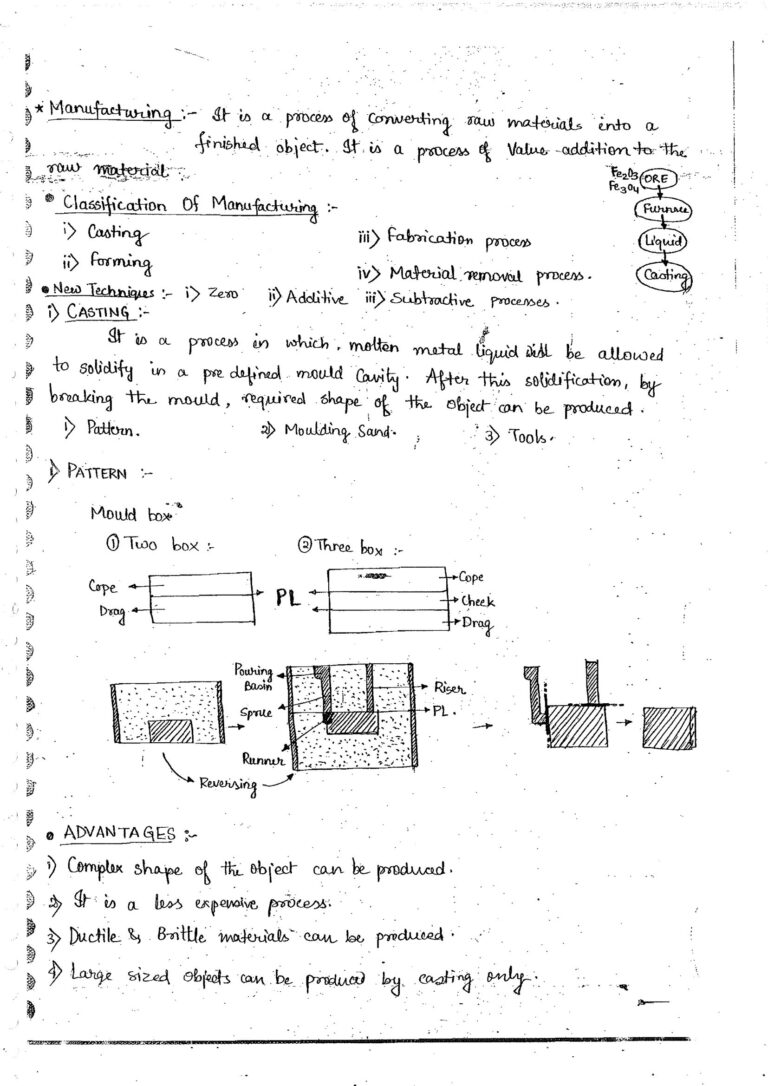 * Manufacturing :- It is a process of converting raw materials into a
finished object. It is a process of Value addition to the
raw material
Fe2O3
Fe3O4
ORE
Furnace
Liquid
Casting
• Classification Of Manufacturing :-
i) Casting
iii) Fabrication process
ii) Forming
iv) Material removal process.
• New Techniques :- i) Zero ii) Additive iii) Subtractive processes.
i) CASTING :-
It is a process in which, molten metal liquid will be allowed
to solidify in a pre defined mould Cavity. After this solidification, by
breaking the mould, required shape of the object can be produced.
1) Pattern. 2) Moulding Sand. 3) Tools.
1) PATTERN :-
Mould box
① Two box :- ② Three box :-
Cope
Drag
PL
Cope
Cheek
Drag
Pouring
Basin
Sprue
Runner
Riser
PL.
Reversing
• ADVANTAGES :-
1) Complex shape of the object can be produced.
2) It is a less expensive process.
3) Ductile & Brittle materials can be produced.
4) Large sized objects can be produced by casting only.